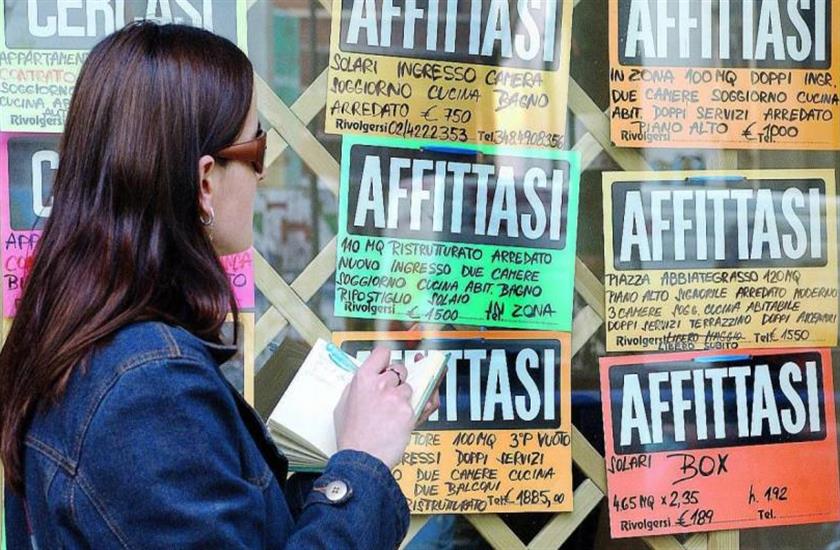 CERCASI
APPARTAMEN
CONTRATTO
SOGGIORNO
CUCINA AB
Rivolgersi
C
AFFITTASI
SOLARI INGRESSO CAMERA
SOGGIORNO CUCINA BAGNO
ARREDATO € 750
Rivolgersi 02/4222353 Tel. 3484908356
AFFITTASI
IN ZONA 100 MQ DOPPI INGR.
DUE CAMERE SOGGIORNO CUCINA
ABIT. DOPPI SERVIZI ARREDATO
PIANO ALTO € 1000
Rivolgersi Tel.
AFFITTASI
110 MQ RISTRUTTURATO ARREDATO
NUOVO INGRESSO DUE CAMERE
SOGGIORNO CUCINA ABIT. BAGNO
RIPOSTIGLIO SOLAIO
Rivolgersi € 1500 IN ZONA
AFFITTASI
PIAZZA ABBIATEGRASSO 120MQ
PIANO ALTO SIGNORILE ARREDATO MODERNO
3 CAMERE SOGG. CUCINA ABITABILE
DOPPI SERVIZI TERRAZZINO DOPPI
Rivolgersi LIBERO MAGGIO Tel. € 1550
LIBERO SUBITO
AFFITTASI
TORE 100 MQ 3°P VUOTO
RESSI DOPPI SERVIZI
O DUE CAMERE CUCINA
DUE BALCONI
RISTRUTTURATO Tel. € 1885,00
AFFITTASI
SOLARI BOX
465 MQ × 2,35 h. 192
Rivolgersi € 189